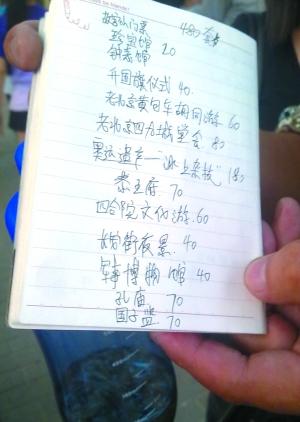 故宫门票 480
珍宝馆 20
钟表馆
升国旗仪式 40
老北京黄包车胡同游 60
老北京四九城堂会 80
奥运遗产—"冰上杂技" 180
恭王府 70
四合院文化游 60
长安街夜景 40
军事博物馆 40
孔庙 70
国子监 70